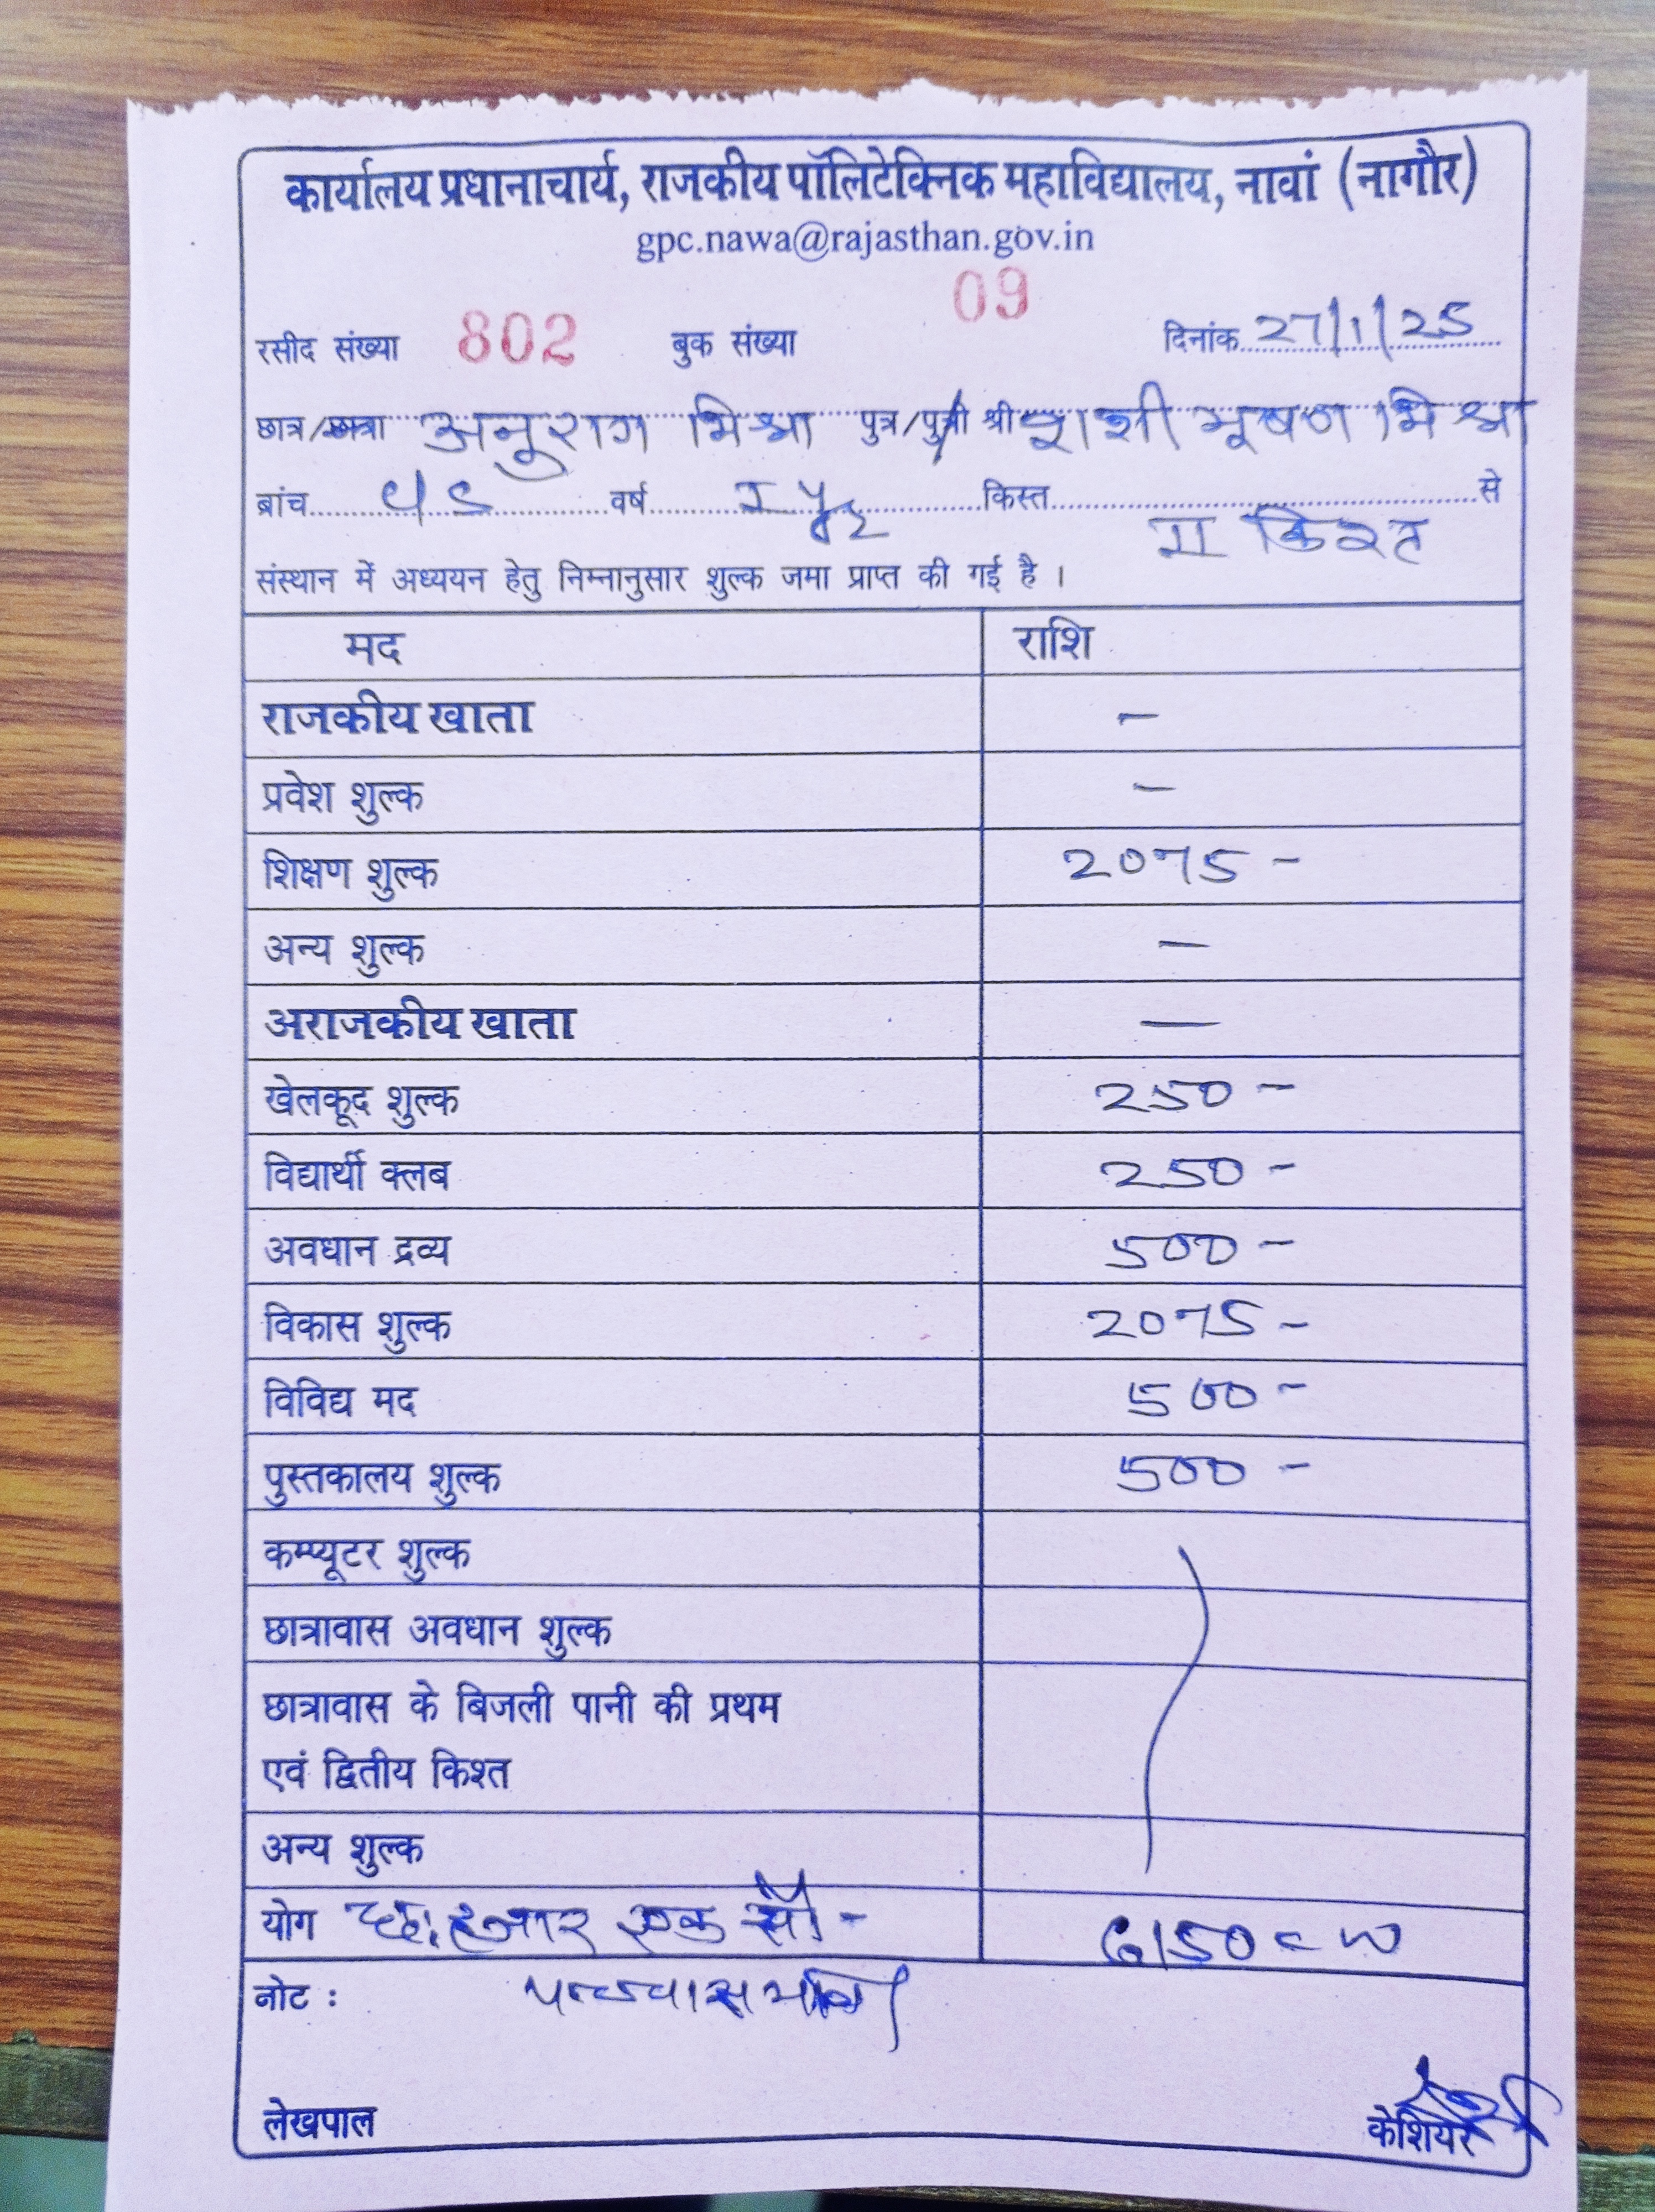 कार्यालय प्रधानाचार्य, राजकीय पॉलिटेक्निक महाविद्यालय, नावां (नागौर)
gpc.nawa@rajasthan.gov.in
रसीद संख्या 802 बुक संख्या 09 दिनांक 27/1/25
छात्र/छात्रा अनुराग मिश्रा पुत्र/पुत्री श्री शशी भूषण मिश्रा
ब्रांच वर्ष I yr किस्त II किश्त से
संस्थान में अध्ययन हेतु निम्नानुसार शुल्क जमा प्राप्त की गई है ।
मद राशि
राजकीय खाता –
प्रवेश शुल्क –
शिक्षण शुल्क 2075 –
अन्य शुल्क –
अराजकीय खाता —
खेलकूद शुल्क 250 –
विद्यार्थी क्लब 250 –
अवधान द्रव्य 500 –
विकास शुल्क 2075 –
विविद्य मद 500 –
पुस्तकालय शुल्क 500 –
कम्प्यूटर शुल्क
छात्रावास अवधान शुल्क
छात्रावास के बिजली पानी की प्रथम
एवं द्वितीय किश्त
अन्य शुल्क
योग छः हजार एक सौ – 6150 = 00
नोट : पच्चास मात्र
लेखपाल केशियर